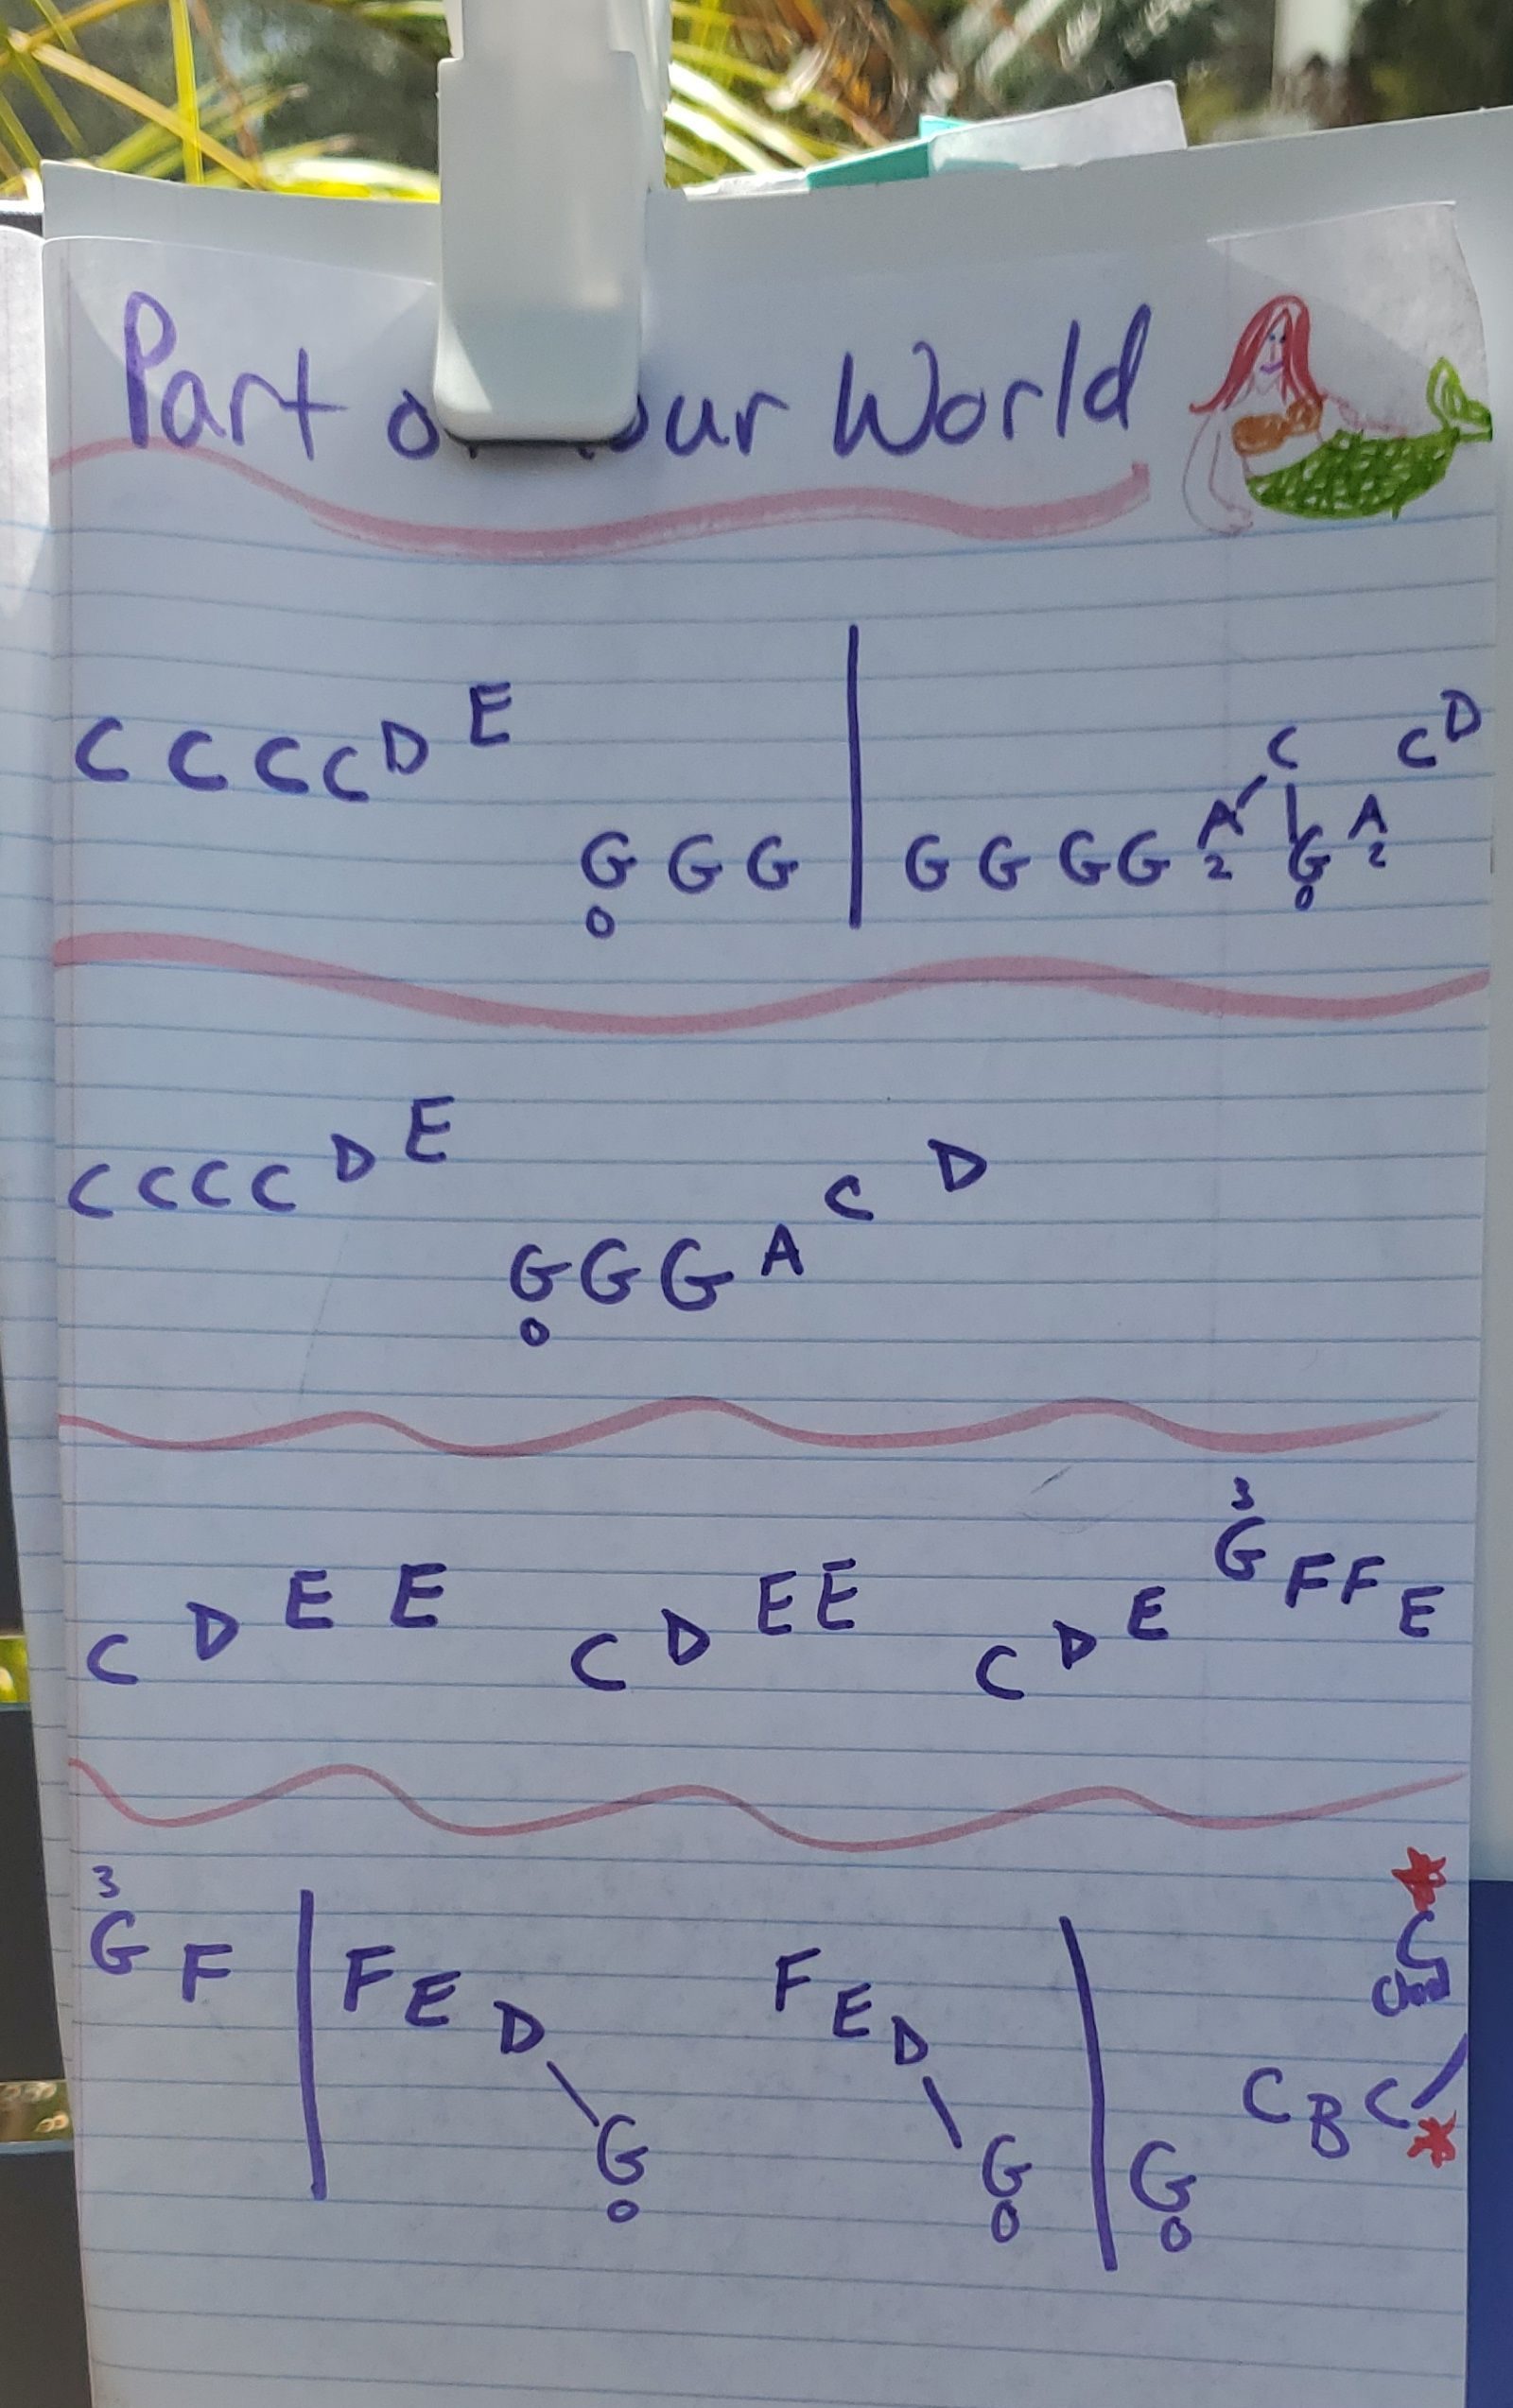 Part o ur World
C C C C D E G G G | G G G G A C G A C D
0 2 0 2
C C C C D E G G G A C D
0
3
C D E E C D E E C D E G F F E
3
G F | F E D G F E D G | G C B C C
0 0 0